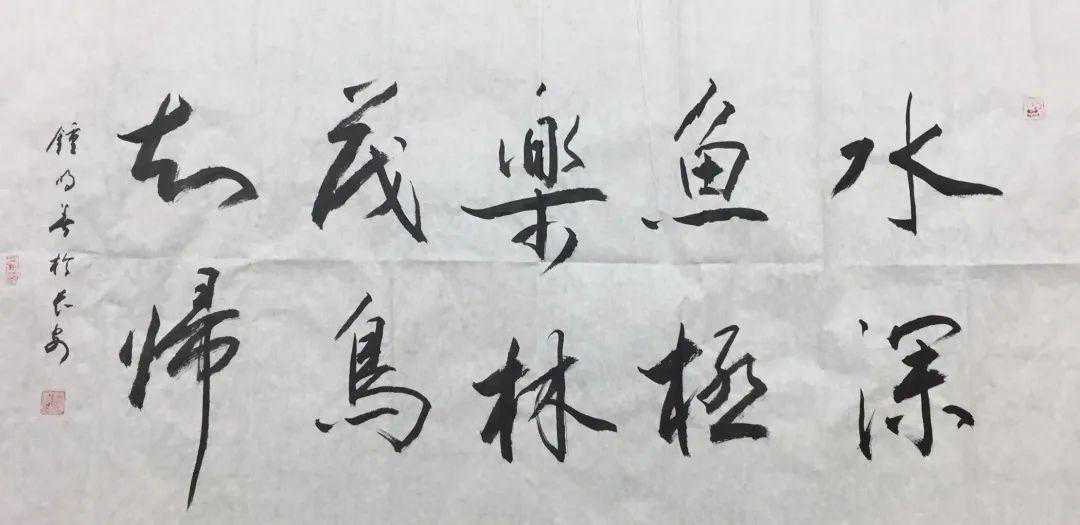 水深
魚極
樂林
茂鳥
知歸
鍾明善於長安